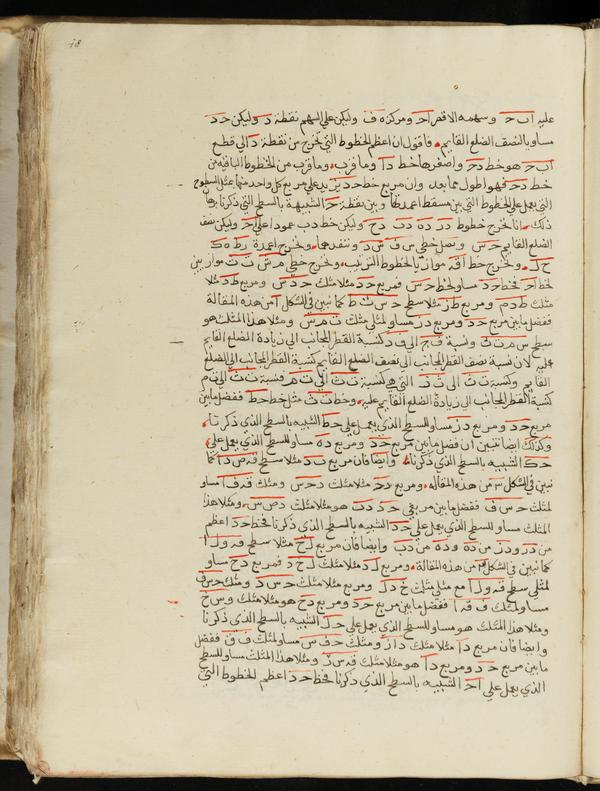 عليه اب ح وسهمه الاقصر اح ومركزه ف وليكن على السهم نقطة د وليكن ح د
مساو بالنصف الضلع القايم فاقول ان اعظم الخطوط التي تخرج من نقطة د الى قطع
اب ح هو خط دح واصغرها خط دا وما قرب وما قرب من الخطوط الباقية من
خط دح فهو اطول مما بعد وان مربع خط حد يزيد على مربع كل واحد منها بمثل السطوح
التي يعمل على الخطوط التي بين مسقط اعمدتها وبين نقطة ح الشبيهة بالسطح التي ذكرنا
ذلك انا نخرج خطوط در ده دب دح وليكن خط دب عمودا على اح وليكن نصف
الضلع القايم ح س ونصل خطي س ف س د وننفدهما ونخرج اعمدة رط ه ك
ح ل ونخرج خط اقه مواز بالخطوط الترتيب ونخرج خطي م ش ن ث موازيين
لخط اح فخط حد مساو لخط ح س فمربع حد مثلا مثلث ح د س ومربع ط د مثلا
مثلث ط د م ومربع ط ز مثلا سطح ح س ث ط كما تبين في الشكل ا من هذه المقالة
ففضل ما بين مربع حد ومربع در مساو لمثلي مثلث ث م ش ومثلا هذا المثلث هو
سطح س م ت ث ونسبة ف ح الى ف د كنسبة القطر المجانب الى زيادة الضلع القايم
عليه لان نسبة نصف القطر المجانب الى نصف الضلع القايم كنسبة القطر المجانب الى الضلع
القايم وكنسبة ت ث الى ث ش التي هي كنسبة ت ث الى ت م فنسبة ت ث الى ث م
كنسبة القطر المجانب الى زيادة الضلع القايم عليه وخط ت ث مثل خط ح ط ففضل ما بين
مربع حد ومربع در مساو للسطح الذي يعمل على حط الشبيه بالسطح الذي ذكرنا
وكذلك ايضا نتبين ان فضل ما بين مربع حد ومربع ده مساو للسطح الذي يعمل على
ح ك الشبيه بالسطح الذي ذكرناه وايضا فان مربع ب د مثلا سطح ف ص د ا كما
تبين في الشكل من هذه المقالة ومربع دح مثلا مثلث د ح س ومثلث ف ا مساو
لمثلث ح س ف ففضل ما بين مربعي ح د دب هو مثلا مثلث د ص س ومثلا هذا
المثلث مساو للسطح الذي يعمل على حد الشبيه بالسطح الذي ذكرنا فخط حد اعظم
من در ودر من ده وده من دب وايضا فان مربع ل ح مثلا سطح قه ول ا
كما تبين في الشكل من هذه المقالة ومربع ل د مثلا مثلث ل خ د فمربع دح مساو
لمثلي سطح قه ول ا مع مثلي مثلث خ د ل ومربع مثلا مثلث ح س د ومثلث ح س ف
مساو لمثلث ف ق ا ففضل ما بين مربع حد ومربع دح هو مثلا مثلث و س خ
ومثلا هذا المثلث هو مساو للسطح الذي يعمل على ح ل الشبيه بالسطح الذي ذكرنا
وايضا فان مربع دا مثلا مثلث دا ز ومثلث ح ف س مساو لمثلث ف ق ففضل
ما بين مربع ح د ومربع دا هو مثلا مثلث قه س ز ومثلا هذا المثلث مساو للسطح
الذي يعمل على اح الشبيه بالسطح الذي ذكرنا فخط حد اعظم الخطوط التي